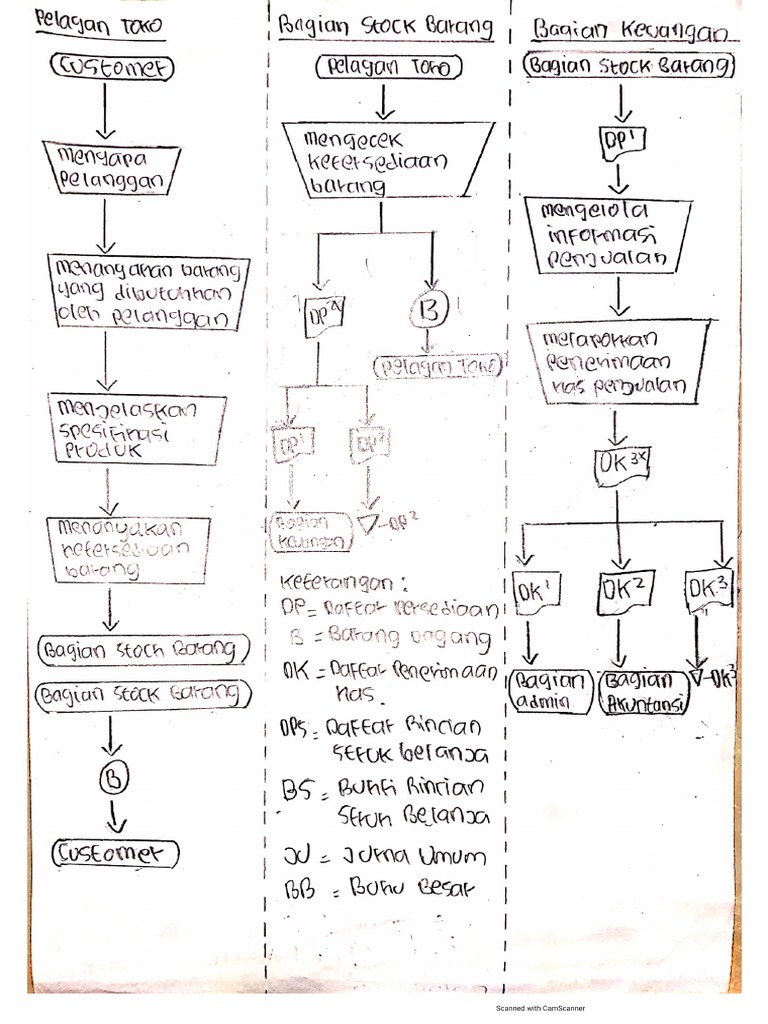 Pelagan Toko
Customer
mengapa
pelanggan
menanyahan barang
yang dibutuhhan
oleh pelanggan
mengelaskan
spesifinasi
produk
menanyakan
hetersediaan
barang
Bagian Stoch Barang
Bagian Stock Barang
B
Customer
Bagian Stock Barang
Pelagan Toko
mengecek
ketersediaan
barang
B
Pelagan Toko
DP1
DP2
Bagian
Keuangan
DP2
Keterangan :
DP = Daftar Persediaan
B = Barang Dagang
DK = Daftar Penerimaan
Kas.
DPS = Daftar Rincian
Struk belanja
BS = Bukti Rincian
Struk Belanja
JU = Jurna Umum
BB = Buku Besar
Bagian Keuangan
Bagian Stock Barang
DP1
mengelola
informasi
penjualan
melaporkan
penerimaan
kas penjualan
DK3x
DK1
DK2
DK3
Bagian
admin
Bagian
Akuntansi
DK3
Scanned with CamScanner